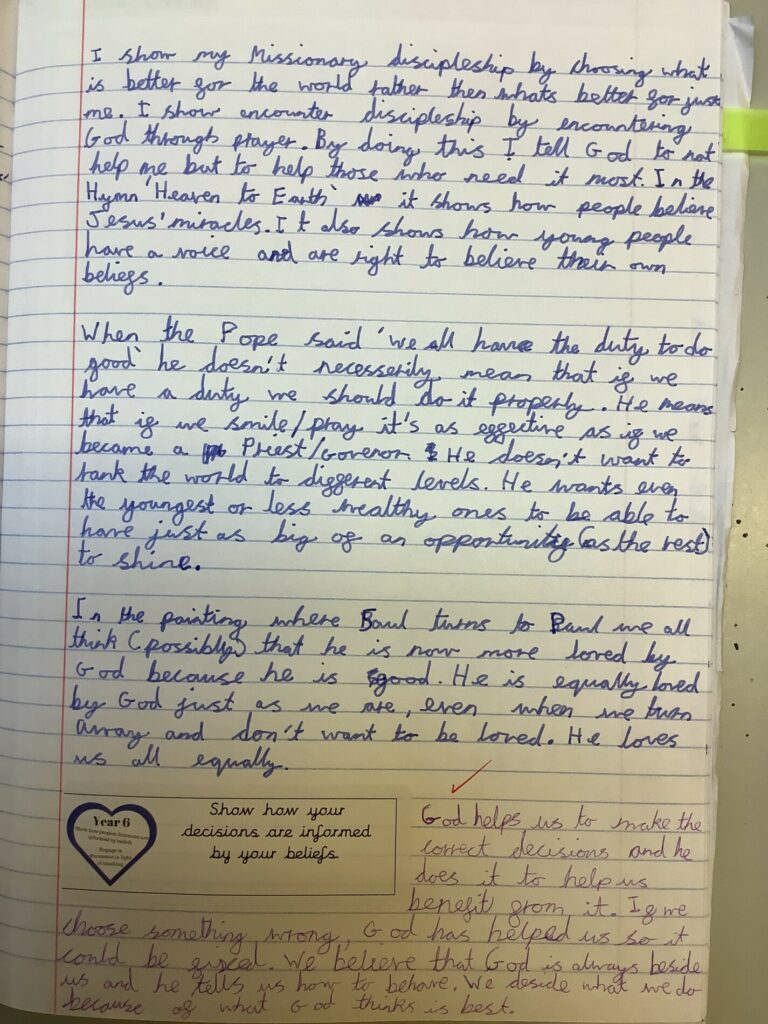 I show my Missionary discipleship by choosing what
is better for the world rather then whats better for just
me. I show encounter discipleship by encountering
God through prayer. By doing this I tell God to not
help me but to help those who need it most. In the
Hymn 'Heaven to Earth' it shows how people believe
Jesus' miracles. It also shows how young people
have a voice and are right to believe their own
beliefs.
When the Pope said 'we all have the duty to do
good' he doesn't necesserily mean that if we
have a duty we should do it properly. He means
that if we smile/pray it's as effective as if we
became a Priest/Govenor. He doesn't want to
rank the world to different levels. He wants even
the youngest or less wealthy ones to be able to
have just as big of an opportunity (as the rest)
to shine.
In the painting where Saul turns to Paul we all
think (possibly) that he is now more loved by
God because he is good. He is equally loved
by God just as we are, even when we turn
away and don't want to be loved. He loves
us all equally.
Year 6
Show how people's decisions are
informed by beliefs
Engage in
discussion in light
of
Show how your
decisions are informed
by your beliefs.
God helps us to make the
correct decisions and he
does it to help us
benefit from it. If we
choose something wrong, God has helped us so it
could be fixed. We believe that God is always beside
us and he tells us how to behave. We deside what we do
because of what God thinks is best.